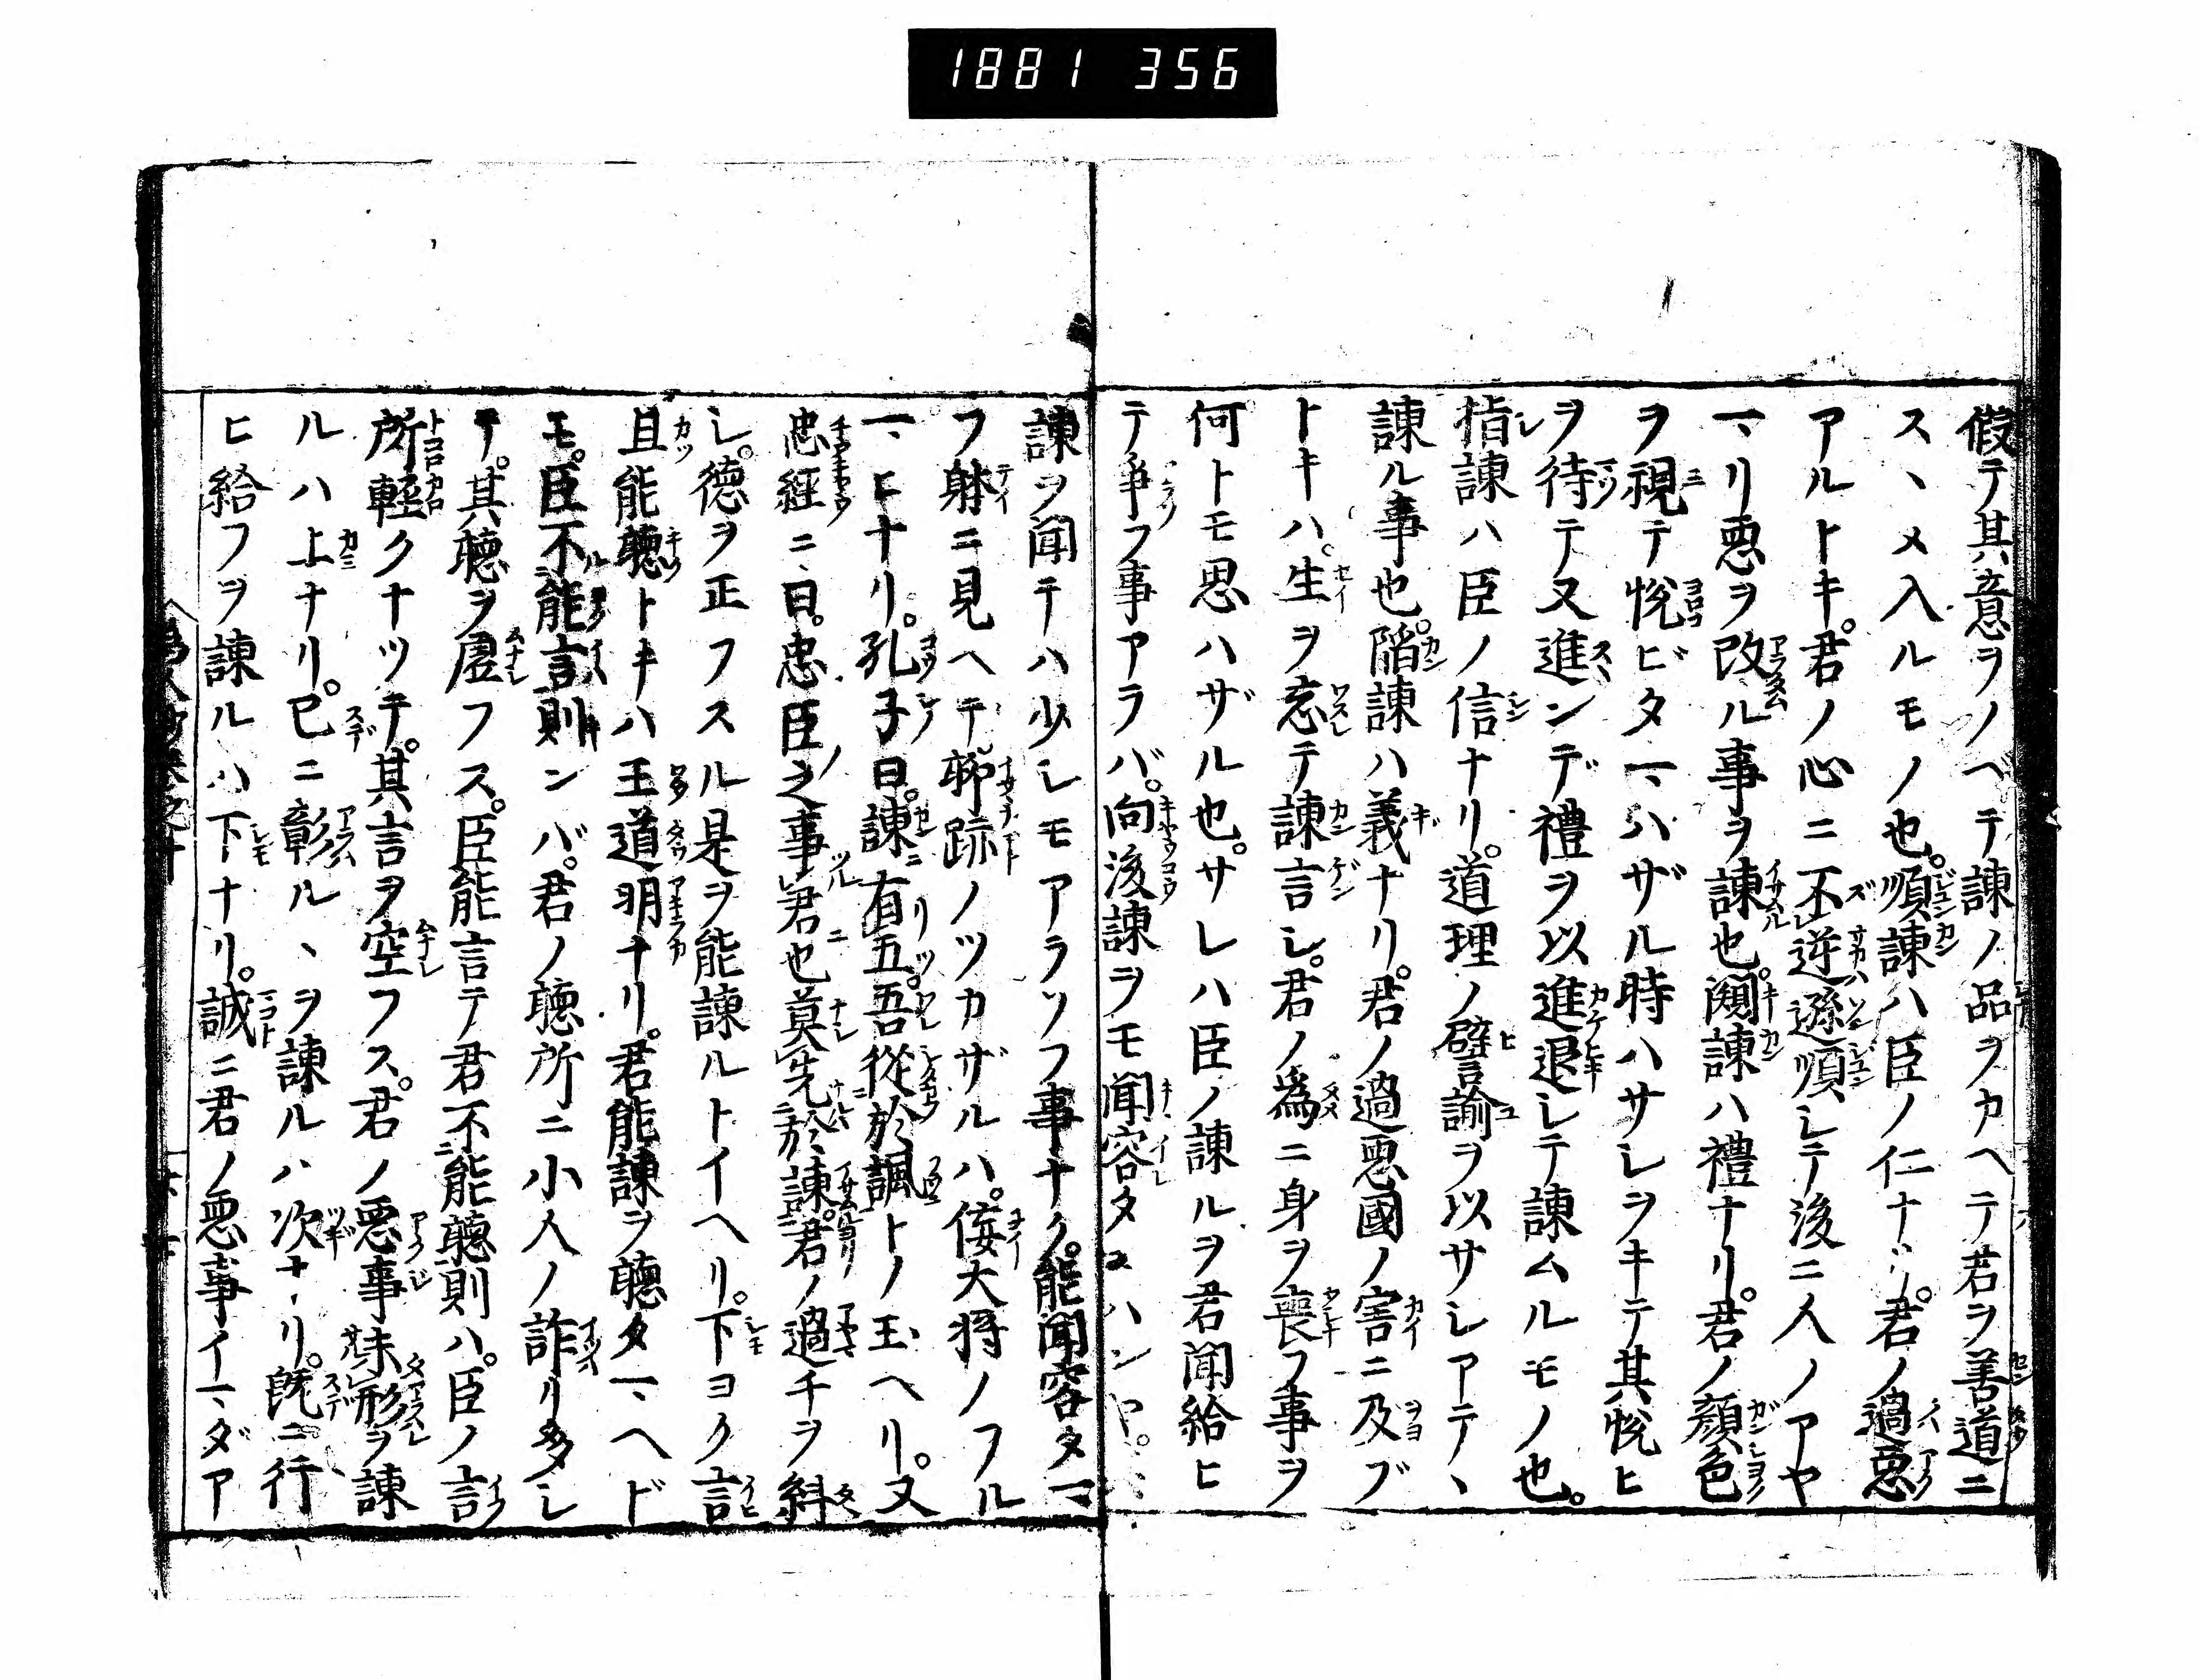 1881 356
假テ其意ヲノベテ諫ノ品ヲカヘテ君ヲ善道ニ
スヽメ入ルモノ也。順諫ハ臣ノ仁ナリ。君ノ過悪
アルトキ。君ノ心ニ不逆遜順シテ後ニ人ノアヤ
マリ悪ヲ改ル事ヲ諫也。闚諫ハ禮ナリ。君ノ顔色
ヲ視テ悦ビタマハザル時ハサシヲキテ其悦ヒ
ヲ待テ又進ンデ禮ヲ以進退シテ諫ムルモノ也。
指諫ハ臣ノ信ナリ。道理ノ譬諭ヲ以サシアテヽ
諫ル事也。陥諫ハ義ナリ。君ノ過悪國ノ害ニ及ブ
トキハ。生ヲ忘テ諫言シ。君ノ為ニ身ヲ喪フ事ヲ
何トモ思ハザル也。サレハ臣ノ諫ルヲ君聞給ヒ
テ争フ事アラバ。向後諫ヲモ聞容タマハンヤ。
諫ヲ聞テハ少シモアラソフ事ナク。能聞容タマ
フ躰ニ見ヘテ聊跡ノツカザルハ。侫大将ノフル
マヒナリ。孔子曰。諫ニ有五。吾從於諷トノ玉ヘリ。又
忠経ニ曰。忠臣之事君也莫先於諫。君ノ過チヲ糾
シ。徳ヲ正フスル是ヲ能諫ルトイヘリ。下ヨク言
且能聴トキハ王道明ナリ。君能諫ヲ聴タマヘド
モ。臣不能言則ンバ。君ノ聴所ニ小人ノ詐リ多シ
テ。其聴ヲ虚フス。臣能言テ君不能聴則ハ。臣ノ言
所軽クナツテ。其言ヲ空フス。君ノ悪事未形ヲ諫
ルハ上ナリ。已ニ彰ルヽヲ諫ルハ次ナリ。既ニ行
ヒ給フヲ諫ルハ下ナリ。誠ニ君ノ悪事イマダア